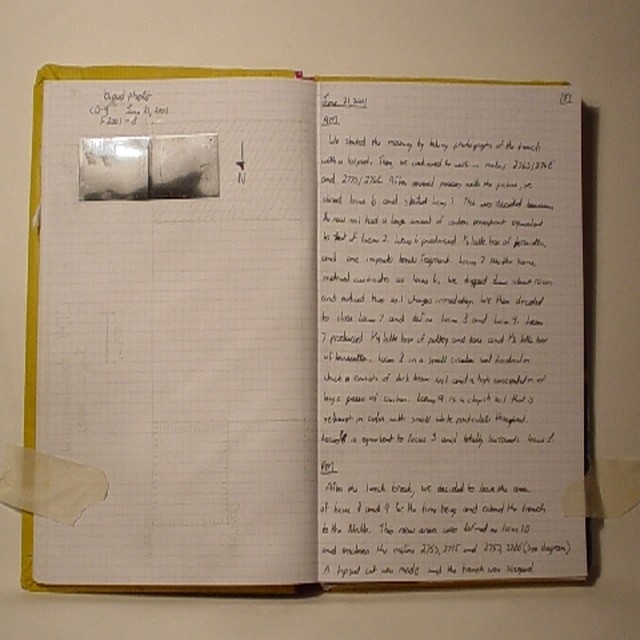 Tripod photo
June 21, 2001
N
June 21, 2001
AM
We started the morning by taking photographs of the trench
with a tripod. Then, we continued to work in meters
and After several passes with the pickaxe, we
closed locus 6 and started locus 7. This was decided because
the new soil had a large amount of carbon equivalent
to that of locus 2. Locus 6 produced 1/2 latte box of
and one fragment. Locus 7
as locus 6, we
and noticed two soil changes immediately. We then decided
to close locus 7 and define locus 8 and locus 9. Locus
7 produced 1/4 latte box of pottery and bone and 1/2 latte box
of Locus 8 is a small circular soil
which consists of dark brown soil and a high concentration of
large pieces of carbon. Locus 9 is a clayish soil that is
yellowish in color with small white particles throughout.
Locus 9 is equivalent to locus 3 and totally surrounds locus 8.
PM
After the lunch break, we decided to leave the area
of locus 8 and 9 for the time being and extend the trench
to the North. This new area was defined as locus 10
and encloses the meters (see diagram)
A topsoil cut was made and the trench was